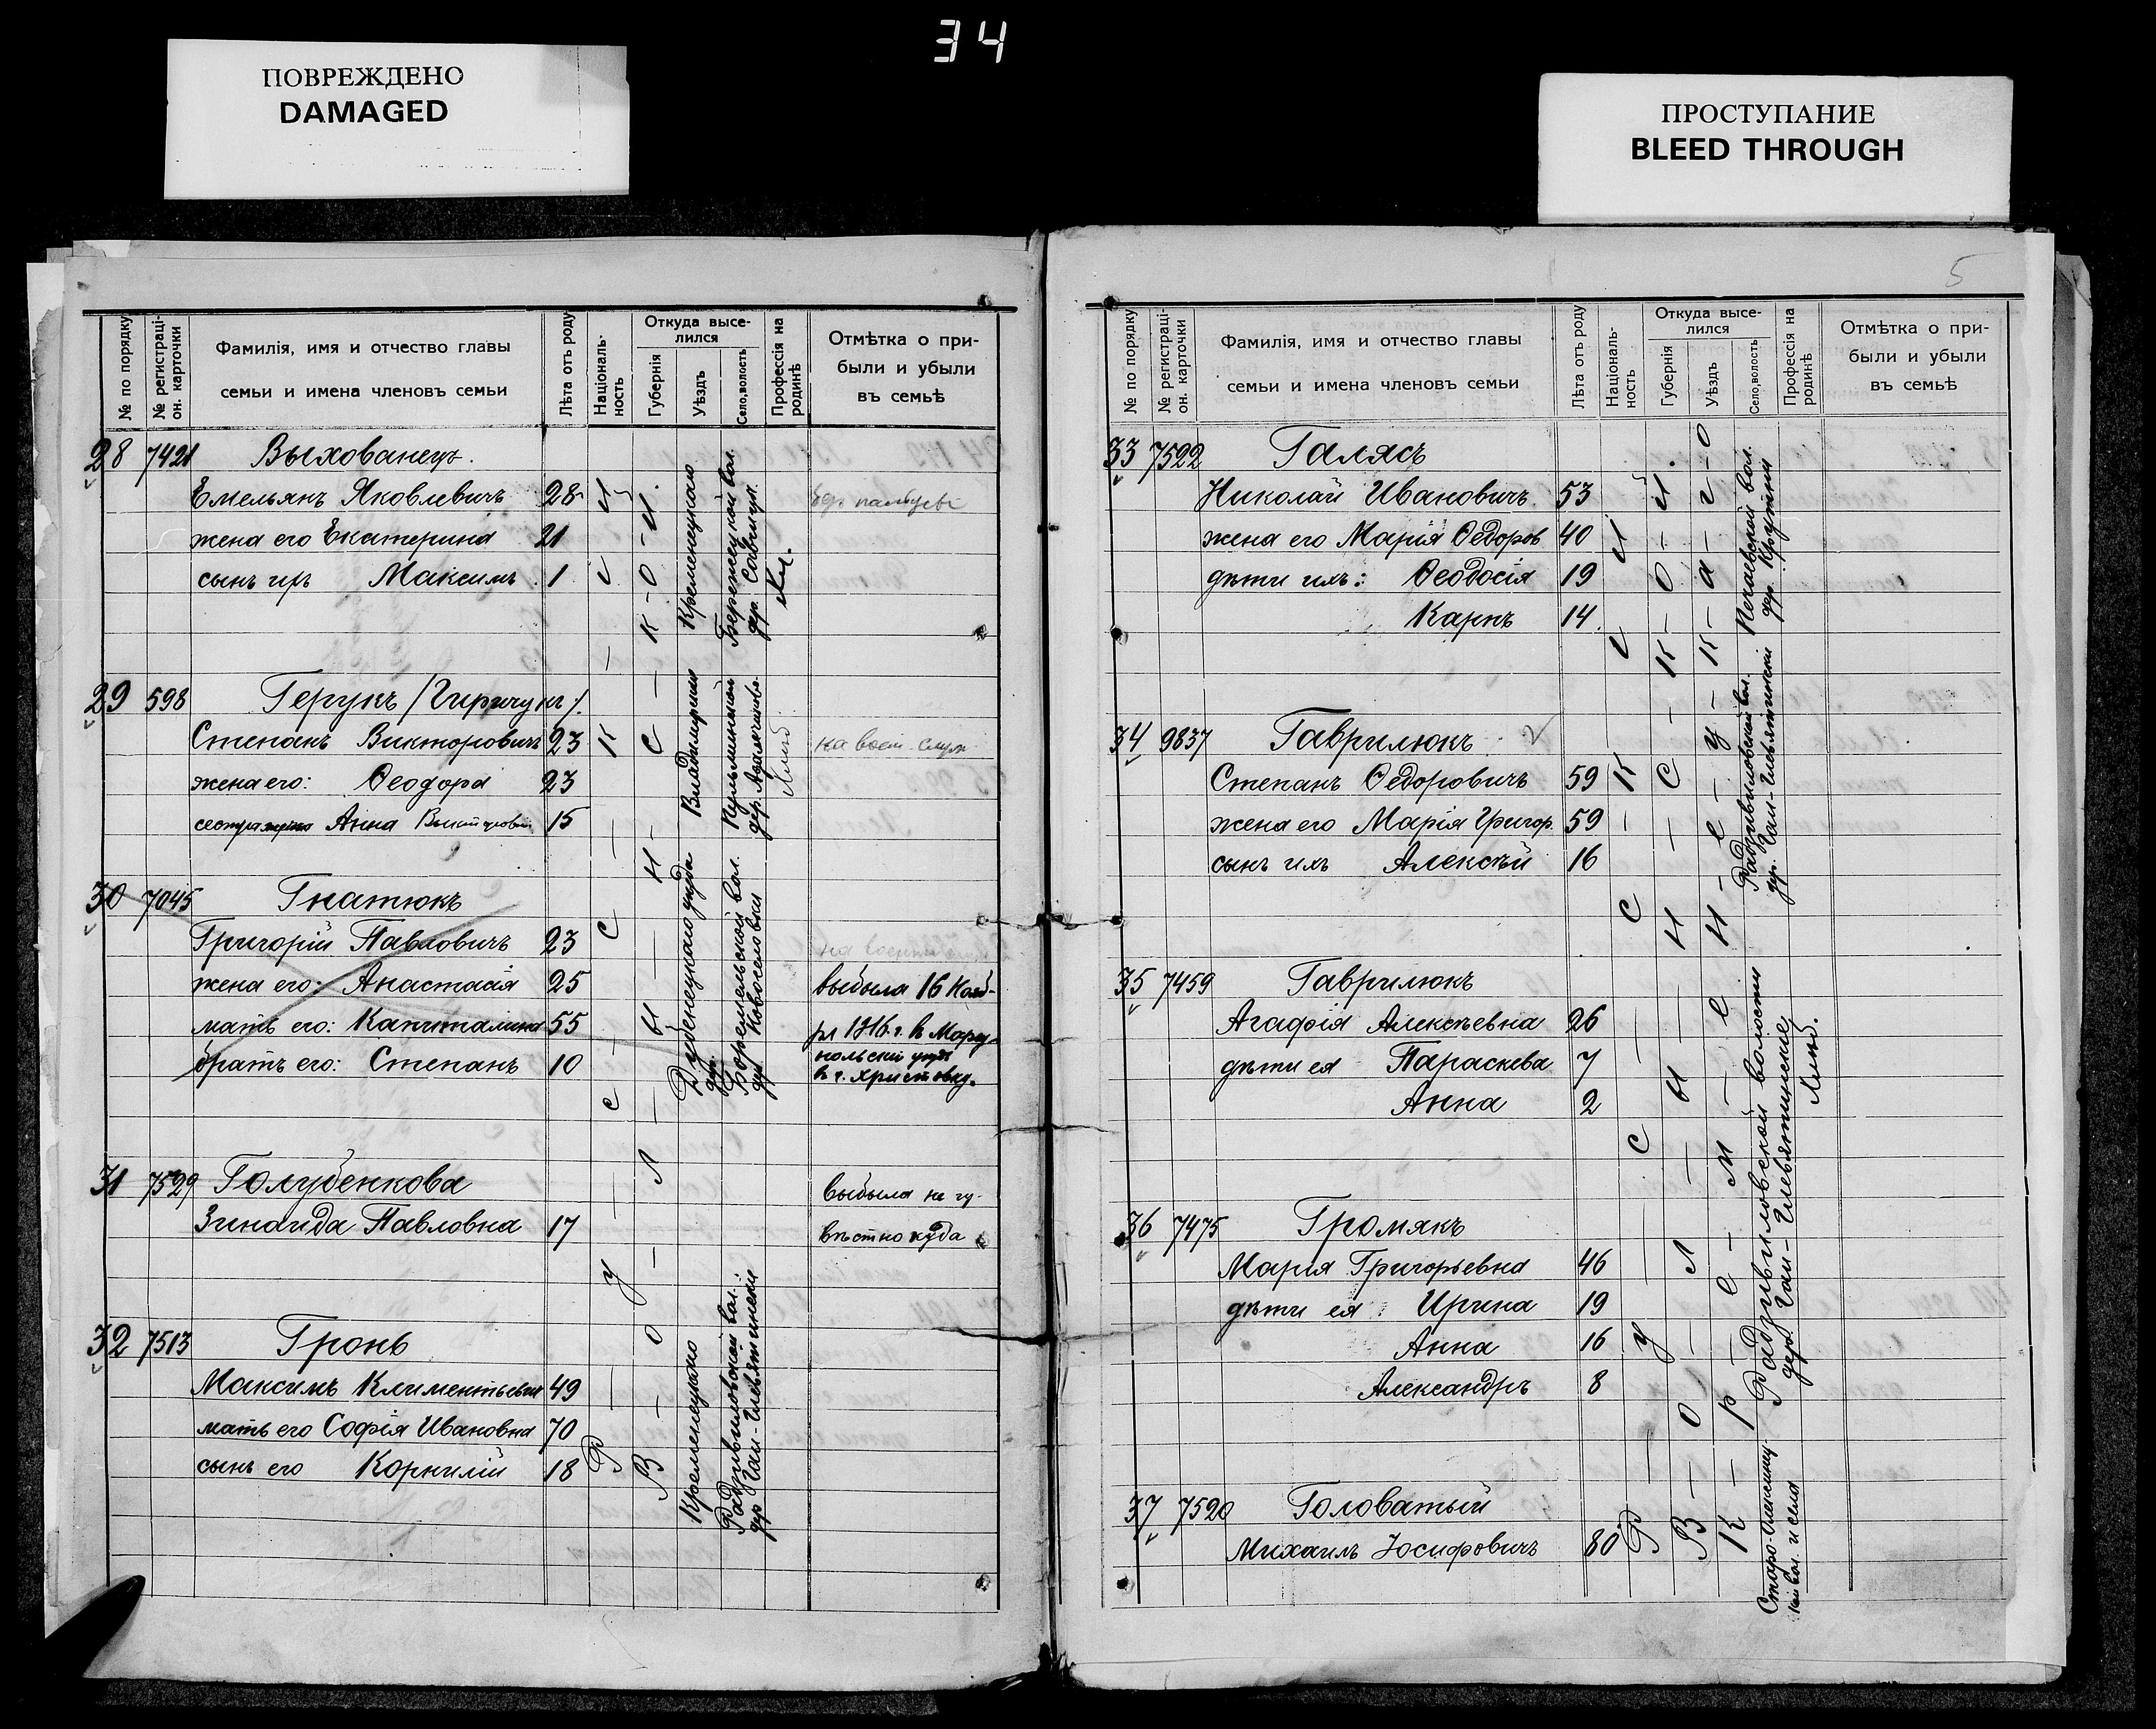 34
ПОВРЕЖДЕНО
DAMAGED
ПРОСТУПАНИЕ
BLEED THROUGH
№ по порядку
№ регистраціон. карточки
Фамилія, имя и отчество главы
семьи и имена членовъ семьи
Лѣта отъ роду
Національность
Откуда выселился
Губернія
Уѣздъ
Село, волость
Профессія на родинѣ
Отмѣтка о прибыли и убыли въ семьѣ
28 7421 Выхованецъ.
Емельянъ Яковлевичъ 28
жена его Екатерина 21
сынъ ихъ Максимъ 1
Кременецкаго
Бережецкой вол.
29 598 Герукъ /Гиричукъ/.
Степанъ Викторовичъ 23 на воен. служ.
жена его: Ѳеодора 23
сестра Анна 15
30 7045 Гнатюкъ
Григорій Павловичъ 23
жена его: Анастасія 25 выбыла 16 Нояб-
мать его: Капиталина 55 ря 1916 г. в Мариу-
братъ его: Степанъ 10 польскій уѣздъ
в г. Христовку.
Дубенецкаго уѣзда
Боремельской вол.
дер. Новоселовки
31 7529 Голубенкова выбыла не из-
Зинаида Павловна 17 вѣстно куда
32 7513 Гронь
Максимъ Климентьевич 49
мать его Софія Ивановна 70
сынъ его Корнилій 18
Кременецкаго
Радзивиловской вол.
дер. Гаи-Глевятинские
Русская
Волынской
5
№ по порядку
№ регистраціон. карточки
Фамилія, имя и отчество главы
семьи и имена членовъ семьи
Лѣта отъ роду
Національность
Откуда выселился
Губернія
Уѣздъ
Село, волость
Профессія на родинѣ
Отмѣтка о прибыли и убыли въ семьѣ
33 7522 Галясъ
Николай Ивановичъ 53
жена его Марія Ѳедоров 40
дѣти ихъ: Ѳеодосія 19
Карпъ 14
34 9837 Гаврилюкъ
Степанъ Ѳедоровичъ 59
жена его Марія Григор. 59
сынъ ихъ Алексѣй 16
Радзивиловской вол.
дер. Гаи-Глевятински
35 7459 Гаврилюкъ
Агафія Алексѣевна 26
дѣти ея Параскева 7
Анна 2
36 7475 Громякъ
Марія Григорьевна 46
дѣти ея: Ирина 19
Анна 16
Александръ 8
Радзивиловской волости
дер. Гаи-Глевятинские
37 7520 Головатый
Михаилъ Іосифовичъ 80
Русскій
Волынской
Кременецкаго